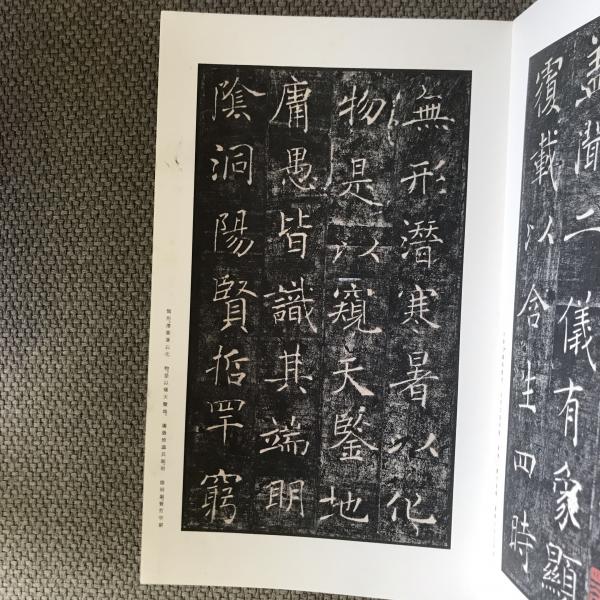 盖聞二儀有象顯
覆載以含生四時
無形潛寒暑以化
物是以窺天鑒地
庸愚皆識其端明
陰洞陽賢哲罕窮
無形潛寒暑以化 物是以窺天鑒地 庸愚皆識其端明 陰洞陽賢哲罕窮